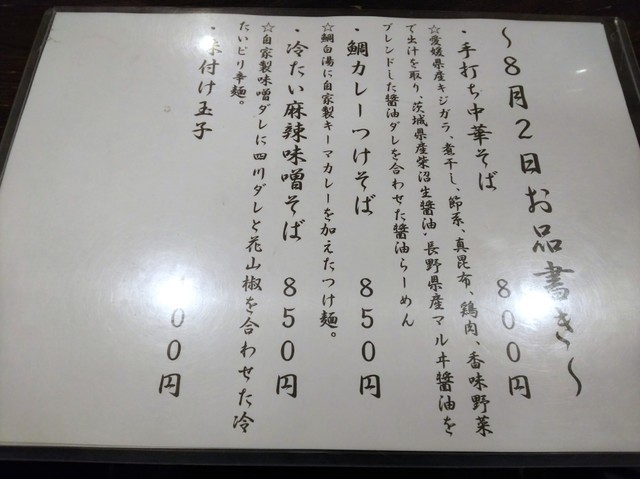 ～8月2日お品書き～
・手打ち中華そば 800円
☆愛媛県産キジガラ、煮干し、節系、真昆布、鶏肉、香味野菜
で出汁を取り、茨城県産柴沼生醤油・長野県産マルヰ醤油を
ブレンドした醤油ダレを合わせた醤油らーめん
・鯛カレーつけそば 850円
☆鯛白湯に自家製キーマカレーを加えたつけ麺。
・冷たい麻辣味噌そば 850円
☆自家製味噌ダレに四川ダレと花山椒を合わせた冷
たいピリ辛麺。
・味付け玉子 00円